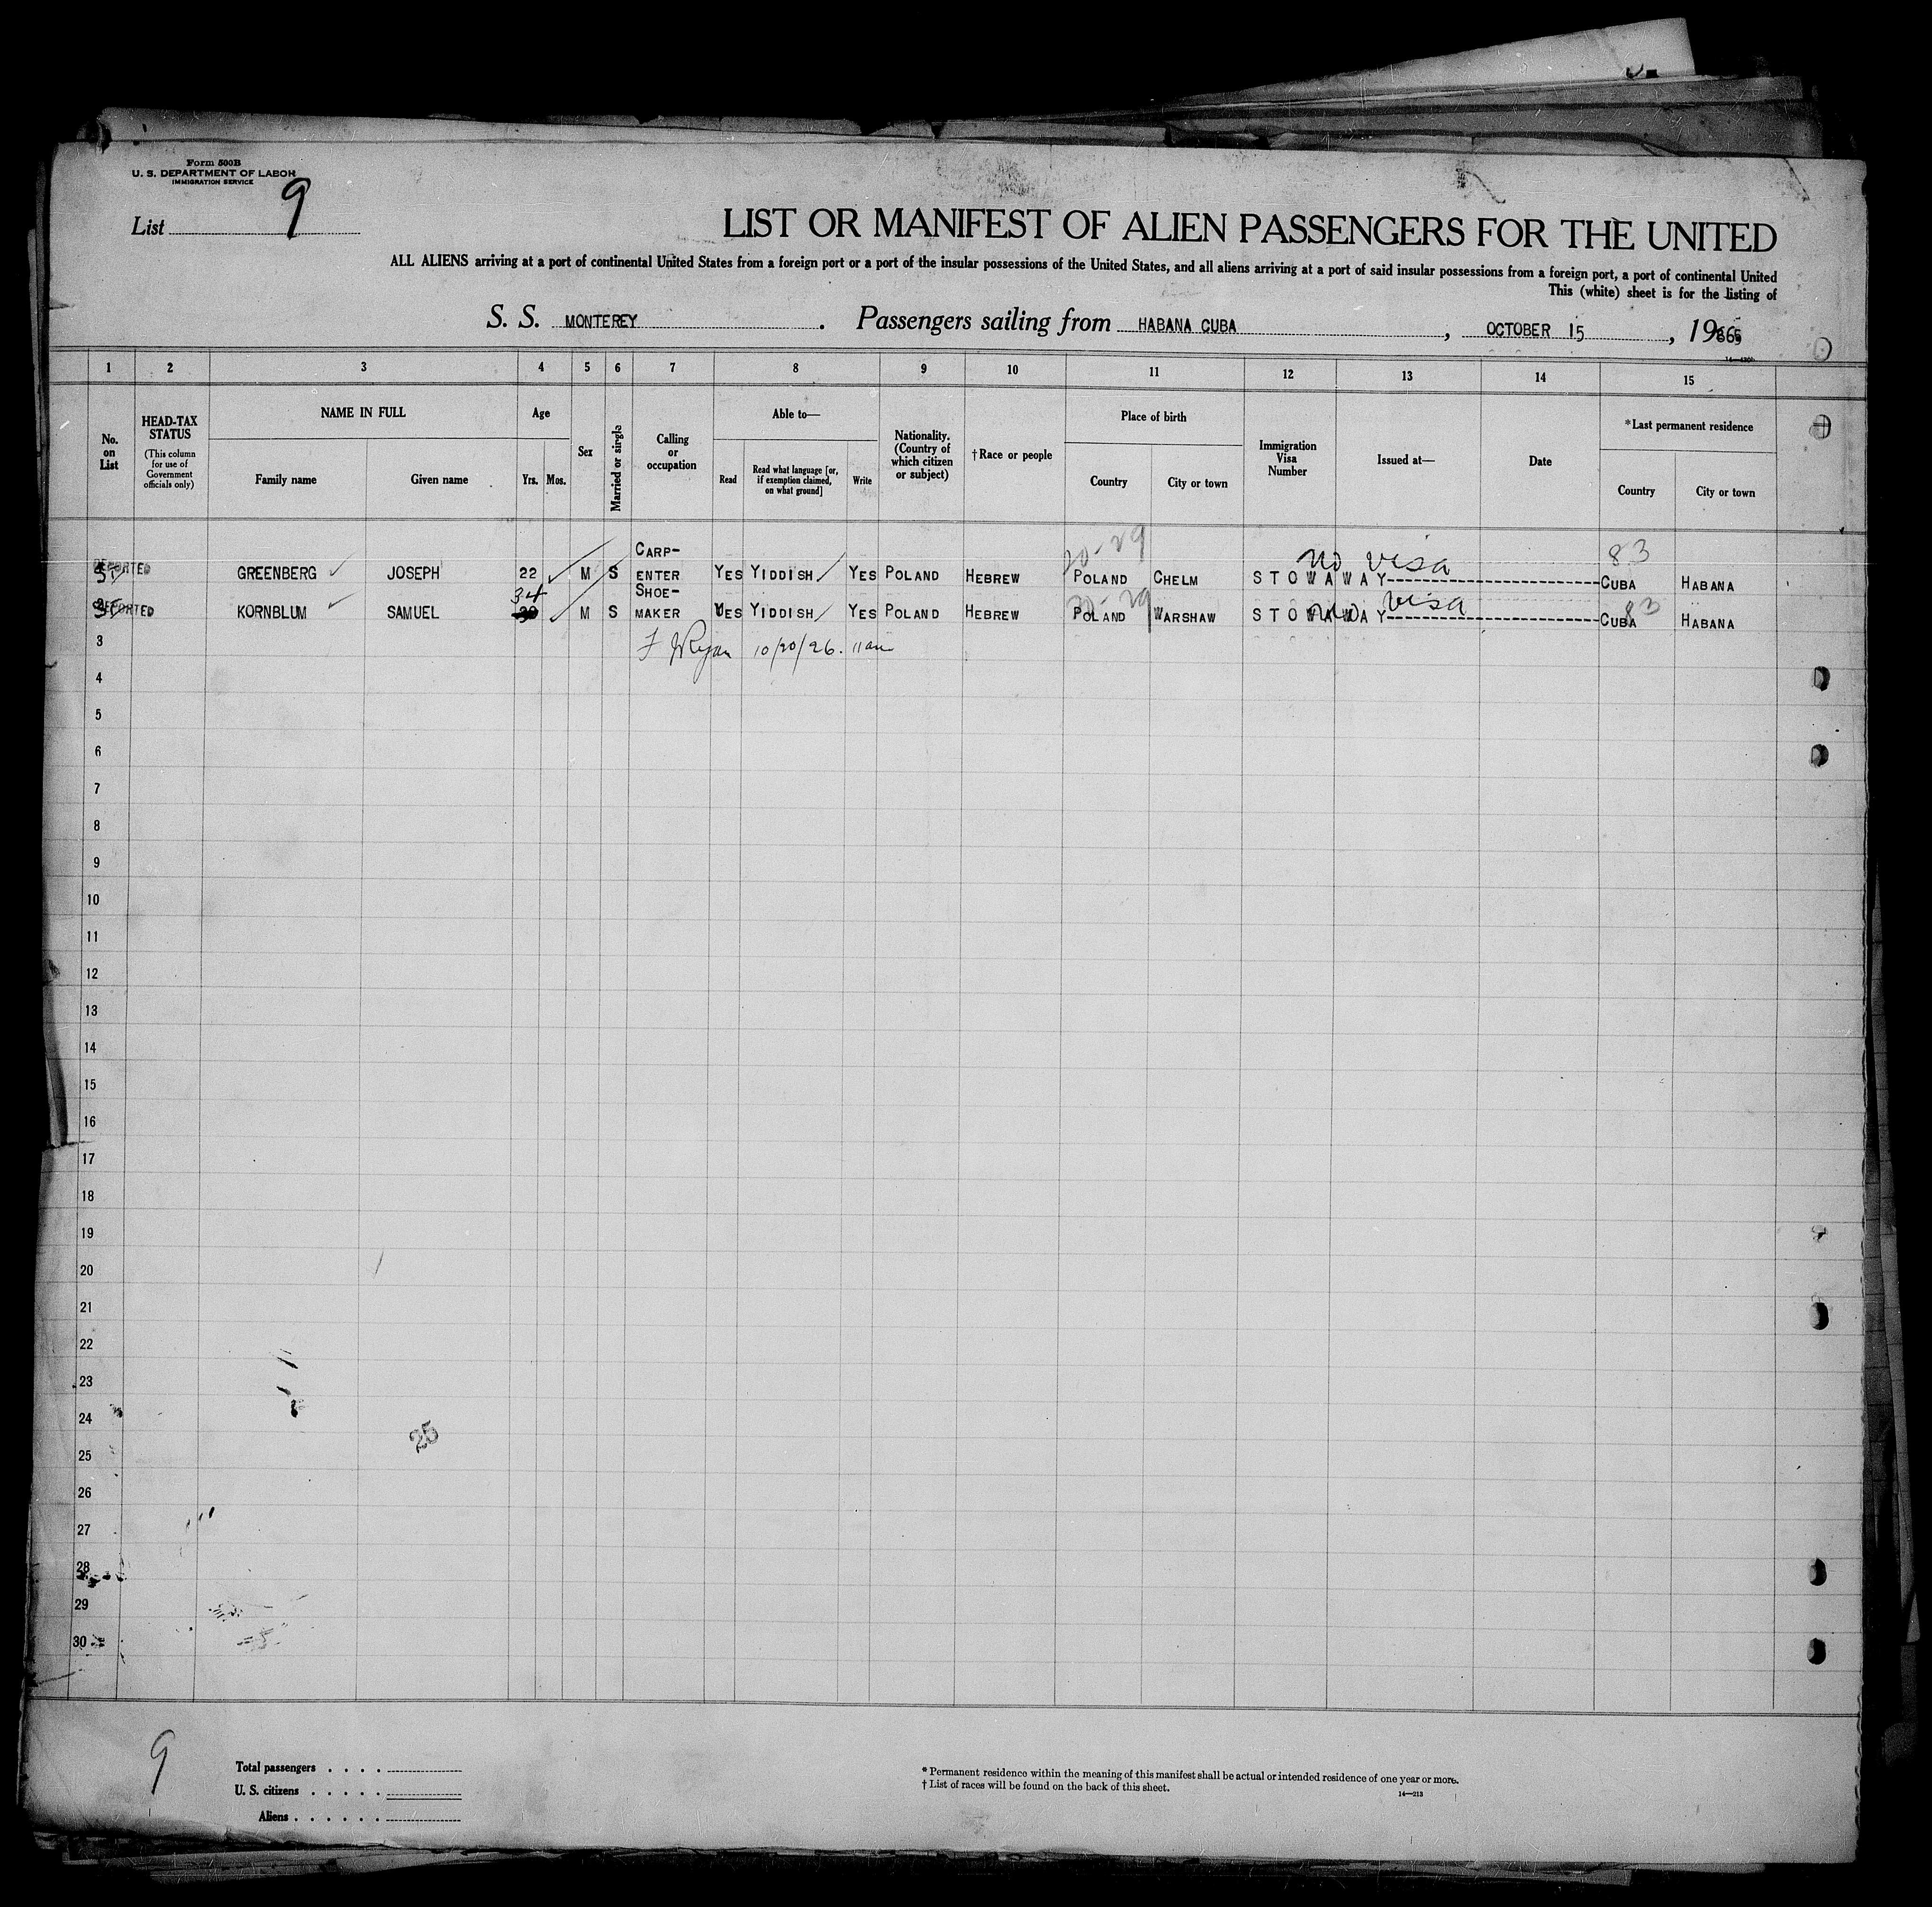 Form 500B
U. S. DEPARTMENT OF LABOR
IMMIGRATION SERVICE
List 9
LIST OR MANIFEST OF ALIEN PASSENGERS FOR THE UNITED
ALL ALIENS arriving at a port of continental United States from a foreign port or a port of the insular possessions of the United States, and all aliens arriving at a port of said insular possessions from a foreign port, a port of continental United
This (white) sheet is for the listing of
S. S. MONTEREY . Passengers sailing from HABANA CUBA , OCTOBER 15 , 19
1 2 3 4 5 6 7 8 9 10 11 12 13 14 15
No. on List
HEAD-TAX STATUS
(This column for use of Government officials only)
NAME IN FULL
Family name Given name
Age
Yrs. Mos.
Sex
Married or single
Calling or occupation
Able to—
Read
Read what language [or, if exemption claimed, on what ground]
Write
Nationality. (Country of which citizen or subject)
†Race or people
Place of birth
Country City or town
Immigration Visa Number
Issued at—
Date
*Last permanent residence
Country City or town
20-29 no visa 83
DEPORTED GREENBERG JOSEPH 22 M S CARP-ENTER YES YIDDISH YES POLAND HEBREW POLAND CHELM STOWAWAY CUBA HABANA
34 visa 83
DEPORTED KORNBLUM SAMUEL M S SHOE-MAKER YES YIDDISH YES POLAND HEBREW POLAND WARSHAW STOWAWAY CUBA HABANA
3 Ryan 10/20/26. 11 am
4
5
6
7
8
9
10
11
12
13
14
15
16
17
18
19
20
21
22
23
24
25
25
26
27
28
29
30
9
Total passengers . . . .
U. S. citizens . . . . .
Aliens . . . . . .
* Permanent residence within the meaning of this manifest shall be actual or intended residence of one year or more.
† List of races will be found on the back of this sheet.
14—213